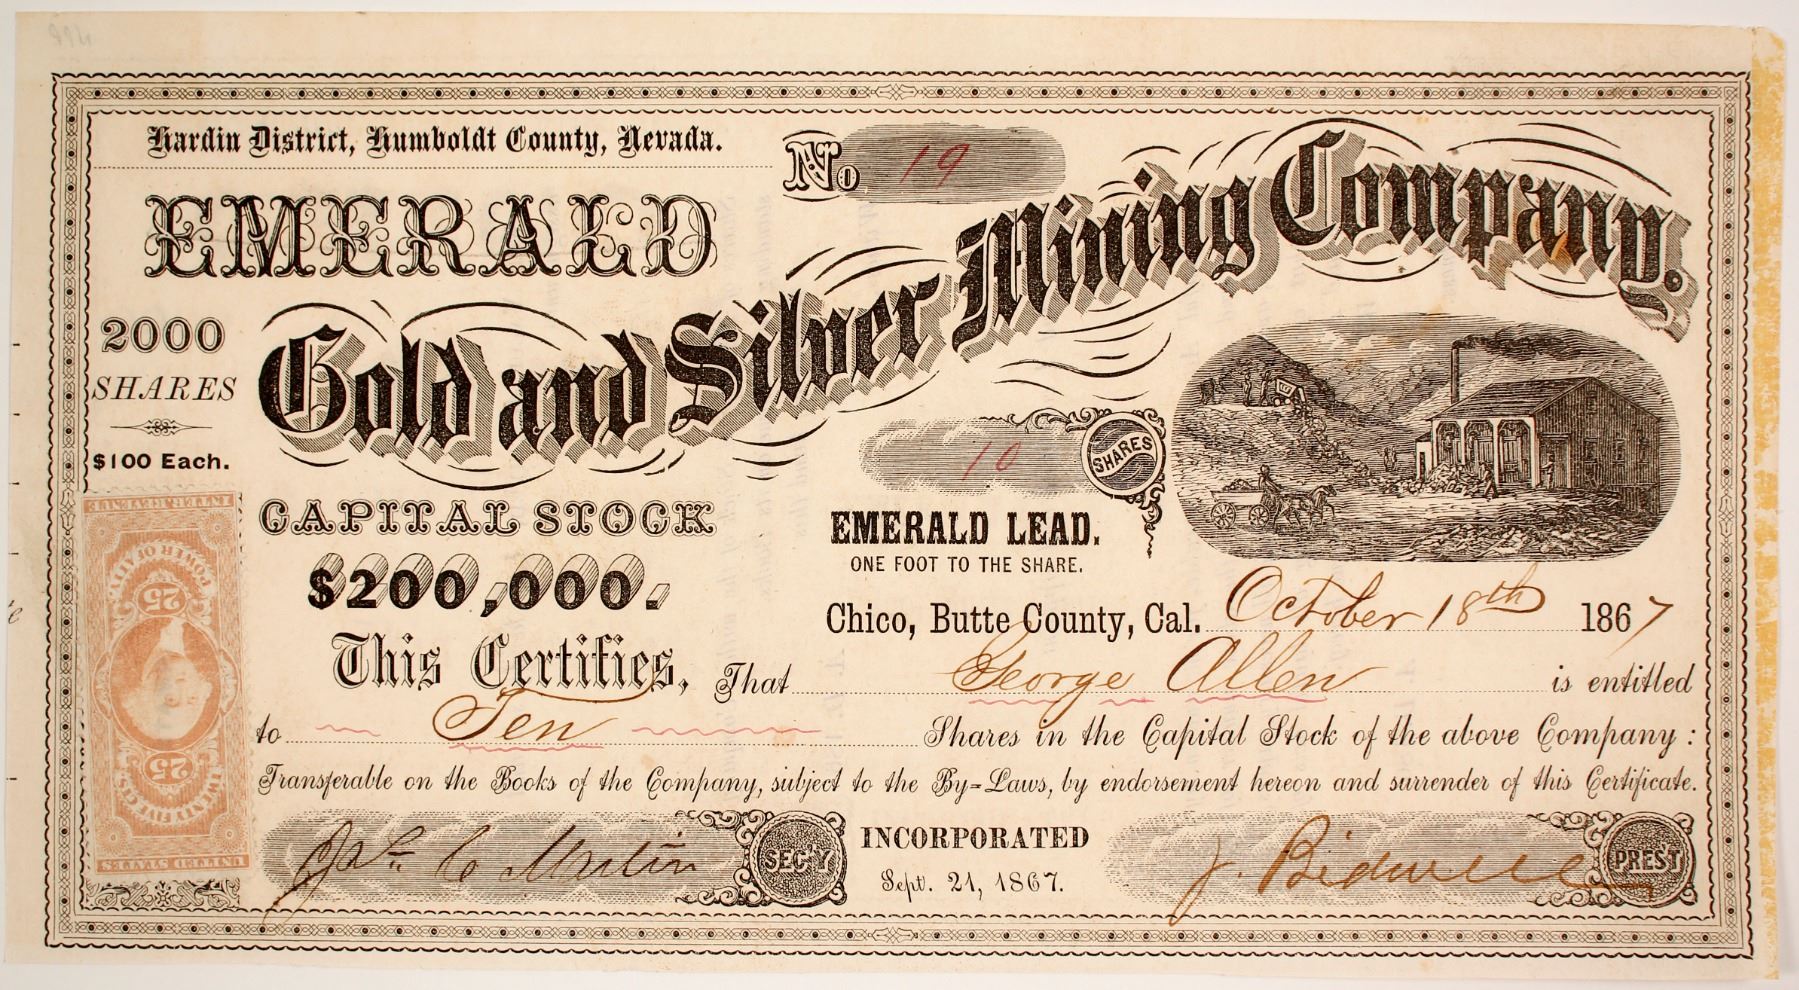 Hardin District, Humboldt County, Nevada.
No 19
EMERALD
Gold and Silver Mining Company.
2000
SHARES
$100 Each.
10 SHARES
CAPITAL STOCK
$200,000.
EMERALD LEAD.
ONE FOOT TO THE SHARE.
Chico, Butte County, Cal. October 18th 1867
This Certifies, That George Allen is entitled
to Ten Shares in the Capital Stock of the above Company:
Transferable on the Books of the Company, subject to the By-Laws, by endorsement hereon and surrender of this Certificate.
SEC'Y
INCORPORATED
Sept. 21, 1867.
J. Bidwell
PRES'T
UNITED STATES
TWENTY FIVE CTS.
25 25
POWER OF AT'TY.
INTER. REVENUE